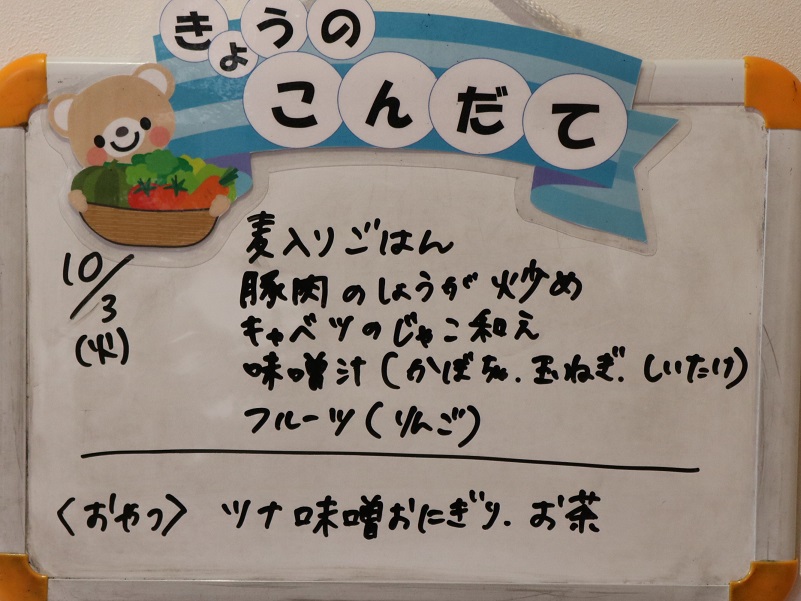 きょうの
こんだて
10/3
(火)
麦入りごはん
豚肉のしょうが炒め
キャベツのじゃこ和え
味噌汁(かぼちゃ.玉ねぎ.しいたけ)
フルーツ(りんご)
〈おやつ〉 ツナ味噌おにぎり.お茶